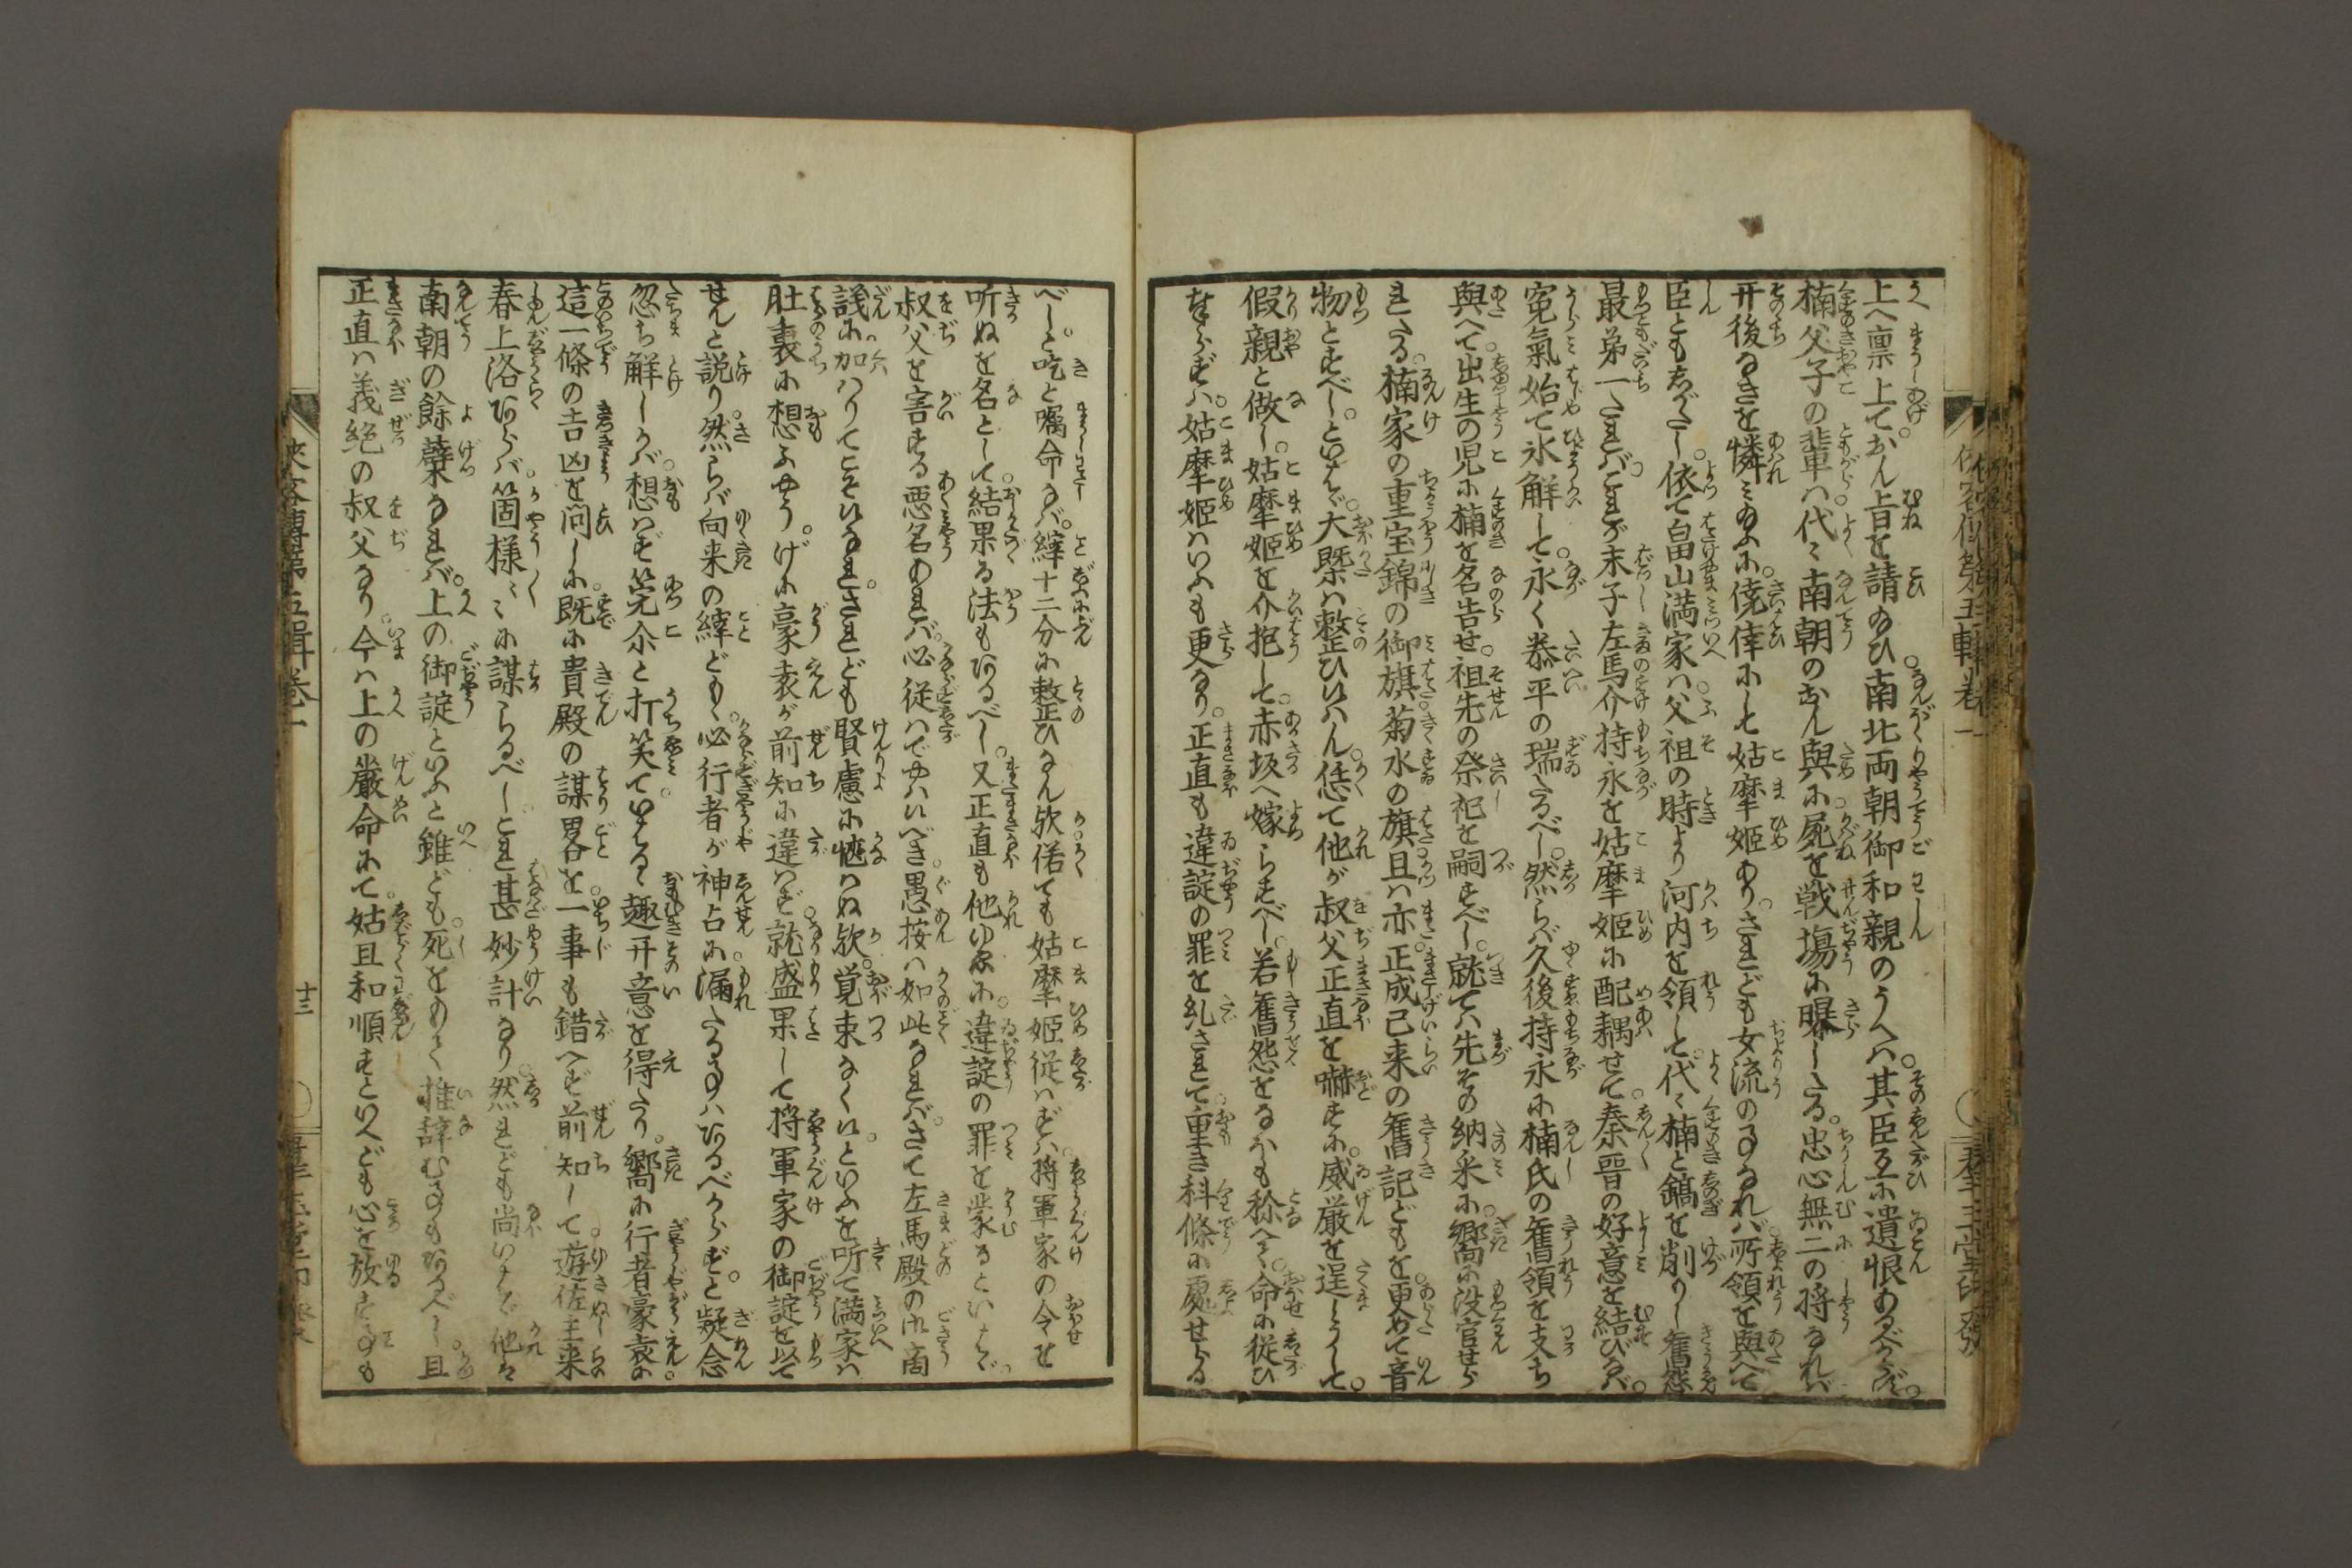 上へ稟上ておん旨を請給ひ。南北両朝御和親のうへハ。其臣互に遺恨あるべからず。
楠父子の輩ハ。代々南朝のおん與に。屍を戦塲に曝したる。忠心無二の将なれバ
开後なきを憐ミ給ふに。僥倖にして姑摩姫あり。されども女流の事なれバ。所領を與へて
臣ともしがたし。依て畠山満家ハ。父祖の時より河内を領して。代々楠と鎬を削りし舊怨
最第一たれバ。これが末子左馬介持永を姑摩姫に配耦せて。秦晋の好意を結びなバ。
寃氣始て氷解して。永く泰平の瑞たるべし。然らバ久後持永に楠氏の舊領を支ち
與へて。出生の児に楠を名告せ。祖先の祭祀を嗣すべし。就てハ先その納采に。嚮に没官せら
れたる。楠家の重宝錦の御旗。菊水の旗。且ハ亦。正成己来の舊記どもを。更めて音
物とすべし。といはゞ。大槩ハ整ひ候ハん。恁て他が叔父正直を嚇すに。威厳を逞しうして。
假親と做し。姑摩姫を介抱して。赤坂へ嫁らすべし。若舊怨をなほも稔へて。命に従ひ
奉らずハ。姑摩姫ハいふも更なり。正直も違諚の罪を糺されて。重き科條に處せらる
べし。と吃と囑命なバ。縡十二分に整ひなん歟。偌ても姑摩姫従ハずハ。将軍家の令を
听ぬを名として。結果る法もあるべし。又正直も他ゆゑに。違諚の罪を蒙るといはゞ
叔父を害する悪名あれバ。必従ハでやハいべき。愚按ハ如此なれバ。さて左馬殿の御商
議に加ハりてこそ候なれ。されども賢慮に愜ハぬ歟。覚束なく候。といふを听て満家ハ
肚裏に想ふやう。げに豪袁が前知に違ハず。就盛果して将軍家の御諚を以て
せんと説り。然らバ向来の縡ども。必行者が神占に。漏たる事ハあるべからず。と疑念
忽ち解しかバ。想ハず筦尓と打笑て。いはるゝ趣开意を得たり。嚮に行者豪袁に。
這一條の吉凶を问しに。既に貴殿の謀畧を。一事も錯へず前知して。遊佐主来
春上洛あらバ。箇様々々に謀らるべし。これ甚妙計なり。然れども尚いまだ他は
南朝の餘蘖なれバ。上の御諚といふと雖ども。死をもて推辞む事もあるべし。且
正直ハ義絶の叔父なり。今ハ上の厳命にて。姑且和順すといへども。心を放す事も
十三